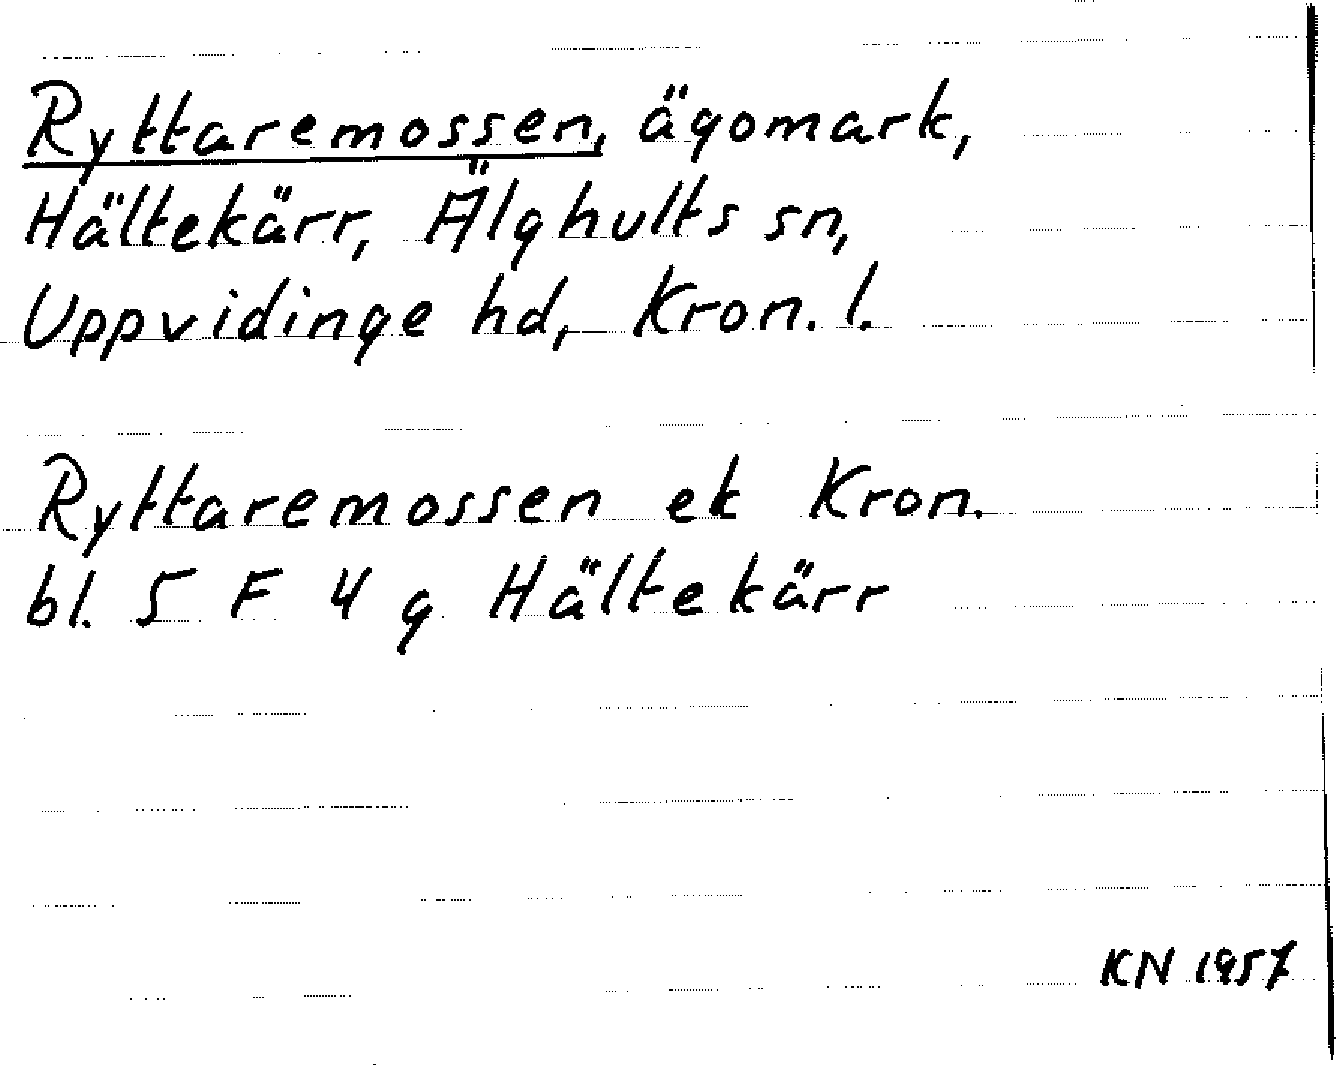 Ryttaremossen, ägomark,
Hältekärr, Älghults sn,
Uppvidinge hd, Kron. l.
Ryttaremossen ek Kron.
bl. 5 F 4 g Hältekärr
KN 1957